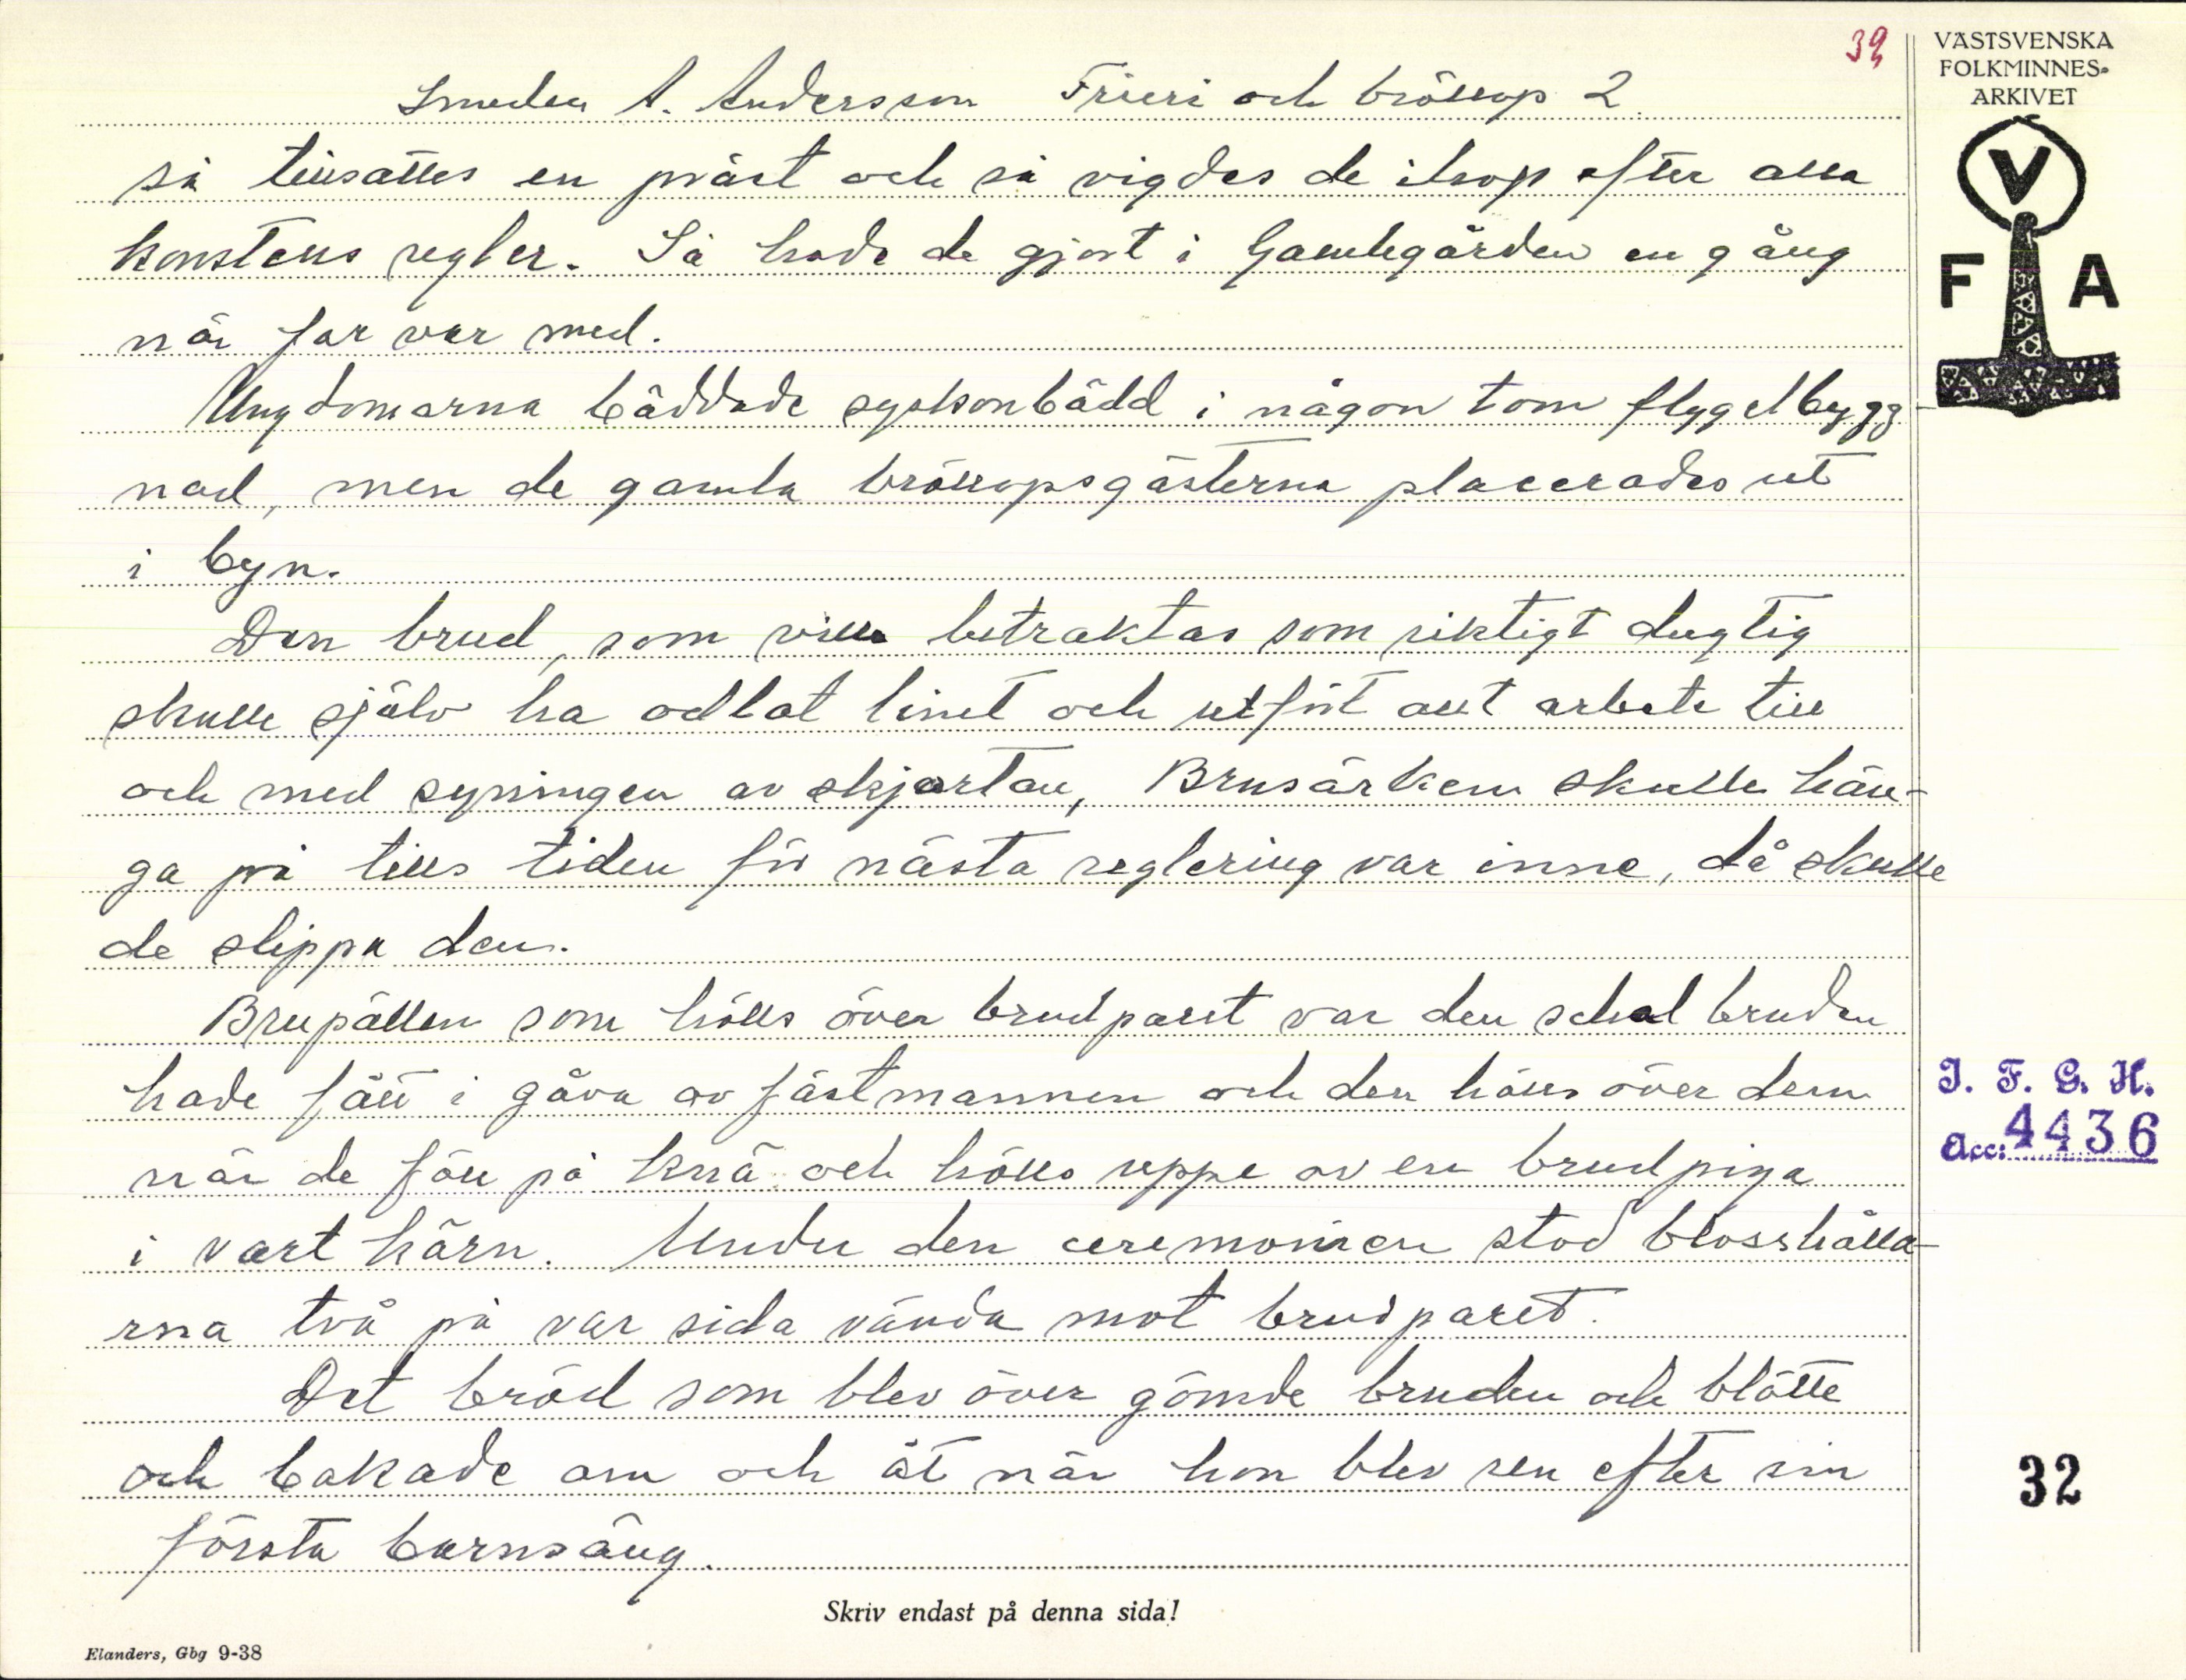 39
VÄSTSVENSKA
FOLKMINNES-
ARKIVET
V
F A
Smeden A. Andersson Frieri och bröllop 2
så tillsattes en präst och så vigdes de ihop efter alla
konstens regler. Så hade de gjort i Gamlegården en gång
när far var med.
Ungdomarna bäddade syskonbädd i någon tom flygelbygg-
nad, men de gamla bröllopsgästerna placerades ut
i byn.
Den brud, som ville betraktas som riktigt dugtig
skulle själv ha odlat linet och utfört allt arbete till
och med syningen av skjortan, Brusärken skulle hän-
ga på tills tiden för nästa reglering var inne, då skulle
de slippa den.
Brupällen som hölls över brudparet var den schal bruden
hade fått i gåva av fästmannen och den hölls över dem
när de föll på knä och hölls uppe av en brudpiga
i vart hörn. Under den ceremonien stod blosshålla-
rna två på var sida vända mot brudparet.
Det bröd som blev över gömde bruden och blötte
och bakade om och åt när hon blev ren efter sin
första barnsäng.
I. F. G. H.
Acc: 4436
32
Skriv endast på denna sida!
Elanders, Gbg 9-38